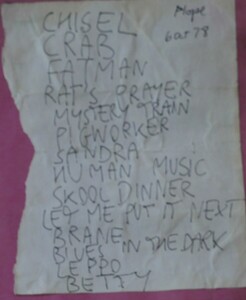 CHISEL
CRAB
FATMAN
RAT'S PRAYER
MYSTERY TRAIN
PIGWORKER
SANDRA
HUMAN MUSIC
SKOOL DINNER
LET ME PUT IT NEXT
BRANE
BLUES IN THE DARK
BETTY
6 OCT 78